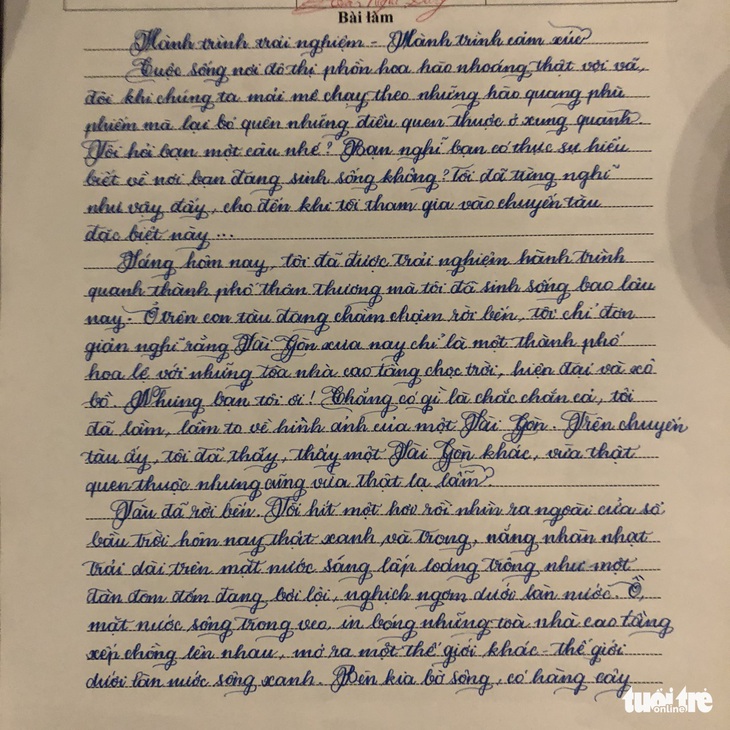 Bài làm
Hành trình trải nghiệm - Hành trình cảm xúc
Cuộc sống nơi đô thị phồn hoa hào nhoáng thật vội vã,
đôi khi chúng ta mải mê chạy theo những hào quang phù
phiếm mà lại bỏ quên những điều quen thuộc ở xung quanh.
Tôi hỏi bạn một câu nhé? Bạn nghĩ bạn có thực sự hiểu
biết về nơi bạn đang sinh sống không? Tôi đã từng nghĩ
như vậy đấy, cho đến khi tôi tham gia vào chuyến tàu
đặc biệt này...
Sáng hôm nay, tôi đã được trải nghiệm hành trình
quanh thành phố thân thương mà tôi đã sinh sống bao lâu
nay. Ở trên con tàu đang chầm chậm rời bến, tôi chỉ đơn
giản nghĩ rằng Sài Gòn xưa nay chỉ là một thành phố
hoa lệ với những tòa nhà cao tầng chọc trời, hiện đại và xô
bồ. Nhưng bạn tôi ơi! Chẳng có gì là chắc chắn cả, tôi
đã lầm, lầm to về hình ảnh của một Sài Gòn. Trên chuyến
tàu ấy, tôi đã thấy, thấy một Sài Gòn khác, vừa thật
quen thuộc nhưng cũng vừa thật lạ lẫm.
Tàu đã rời bến. Tôi hít một hơi rồi nhìn ra ngoài cửa sổ
bầu trời hôm nay thật xanh và trong, nắng nhàn nhạt
trải dài trên mặt nước sáng lấp loáng trông như một
đàn đom đóm đang bơi lội, nghịch ngợm dưới làn nước. Ồ,
mặt nước sông trong veo, in bóng những toà nhà cao tầng
xếp chồng lên nhau, mở ra một thế giới khác - thế giới
dưới làn nước sông xanh. Bên kia bờ sông, có hàng cây
tuổi trẻ
online